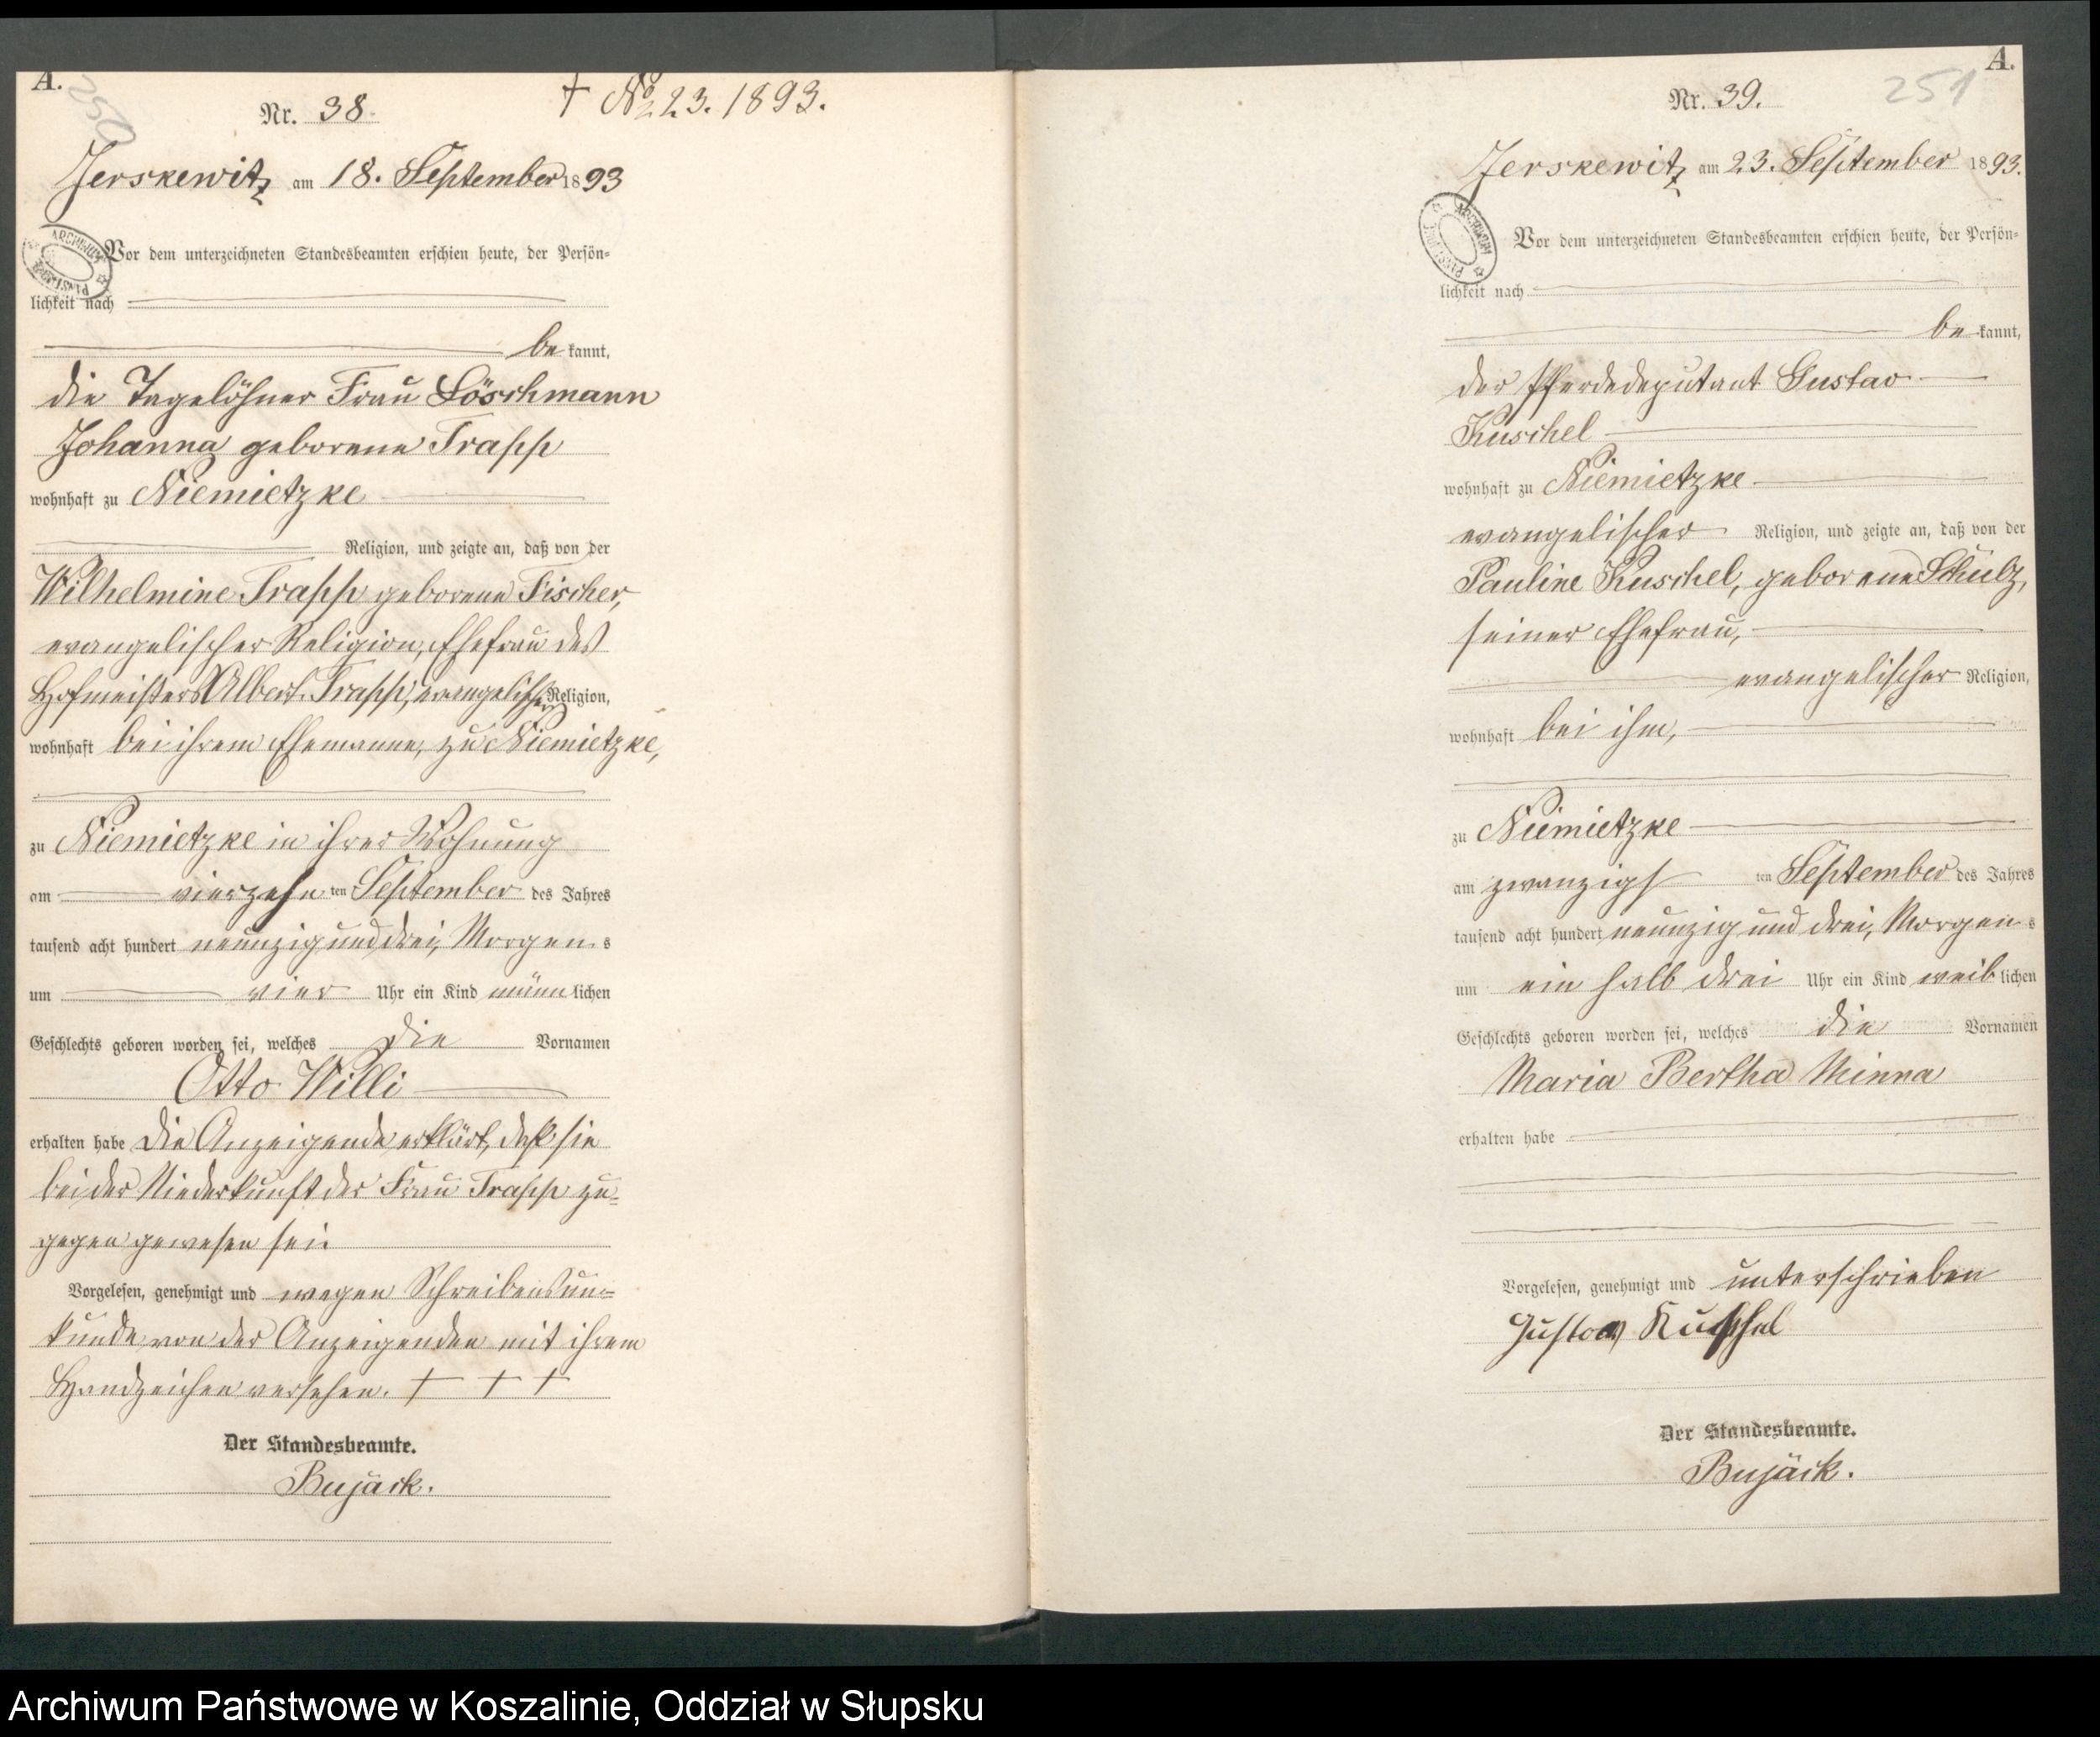 A.
250
Nr. 38.
† No 23. 1893.
Jerskewitz am 18. September 1893
Vor dem unterzeichneten Standesbeamten erschien heute, der Persön-
lichkeit nach
be kannt,
die Tagelöhner Frau Löschmann
Johanna geborene Trapp
wohnhaft zu Niemietzke
Religion, und zeigte an, daß von der
Wilhelmine Trapp geborene Fischer,
evangelischer Religion, Ehefrau des
Hofmeisters Albert Trapp, evangelischer Religion,
wohnhaft bei ihrem Ehemanne, zu Niemietzke,
zu Niemietzke in ihrer Wohnung
am vierzehn ten September des Jahres
tausend acht hundert neunzig und drei, Morgen s
um vier Uhr ein Kind männ lichen
Geschlechts geboren worden sei, welches die Vornamen
Otto Willi
erhalten habe die Anzeigende erklärt, daß sie
bei der Niederkunft der Frau Trapp zu-
gegen gewesen sei.
Vorgelesen, genehmigt und wegen Schreibensun-
kunde von der Anzeigenden mit ihrem
Handzeichen versehen. † † †
Der Standesbeamte.
Bujäck.
A.
251
Nr. 39.
Jerskewitz am 23. September 1893.
ARCHIWUM
Vor dem unterzeichneten Standesbeamten erschien heute, der Persön-
lichkeit nach
be kannt,
der Pferdedeputant Gustav
Kuschel
wohnhaft zu Niemietzke
evangelischer Religion, und zeigte an, daß von der
Pauline Kuschel, geborene Schulz,
seiner Ehefrau,
evangelischer Religion,
wohnhaft bei ihm,
zu Niemietzke
am zwanzigs ten September des Jahres
tausend acht hundert neunzig und drei, Morgen s
um ein halb drei Uhr ein Kind weib lichen
Geschlechts geboren worden sei, welches die Vornamen
Maria Bertha Minna
erhalten habe
Vorgelesen, genehmigt und unterschrieben
Gustav Kuschel
Der Standesbeamte.
Bujäck.
Archiwum Państwowe w Koszalinie, Oddział w Słupsku